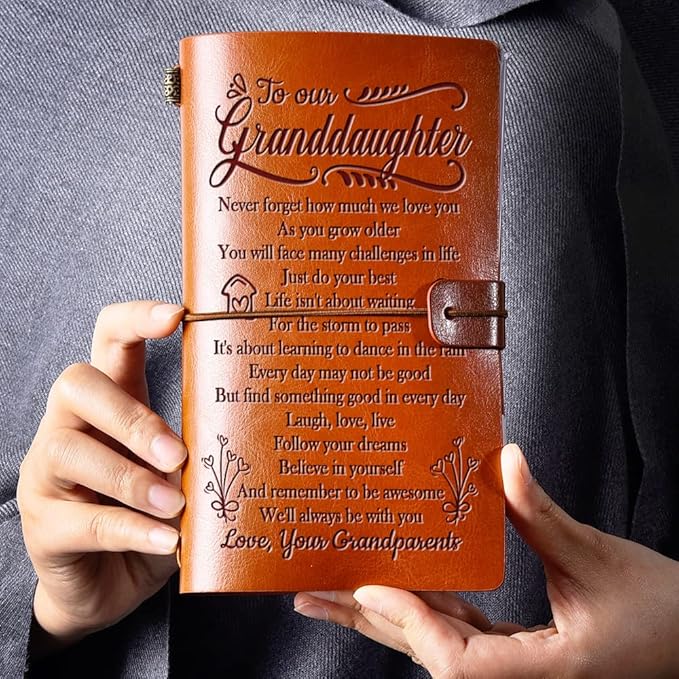 To our
Granddaughter
Never forget how much we love you
As you grow older
You will face many challenges in life
Just do your best
Life isn't about waiting
For the storm to pass
It's about learning to dance in the rain
Every day may not be good
But find something good in every day
Laugh, love, live
Follow your dreams
Believe in yourself
And remember to be awesome
We'll always be with you
Love, Your Grandparents